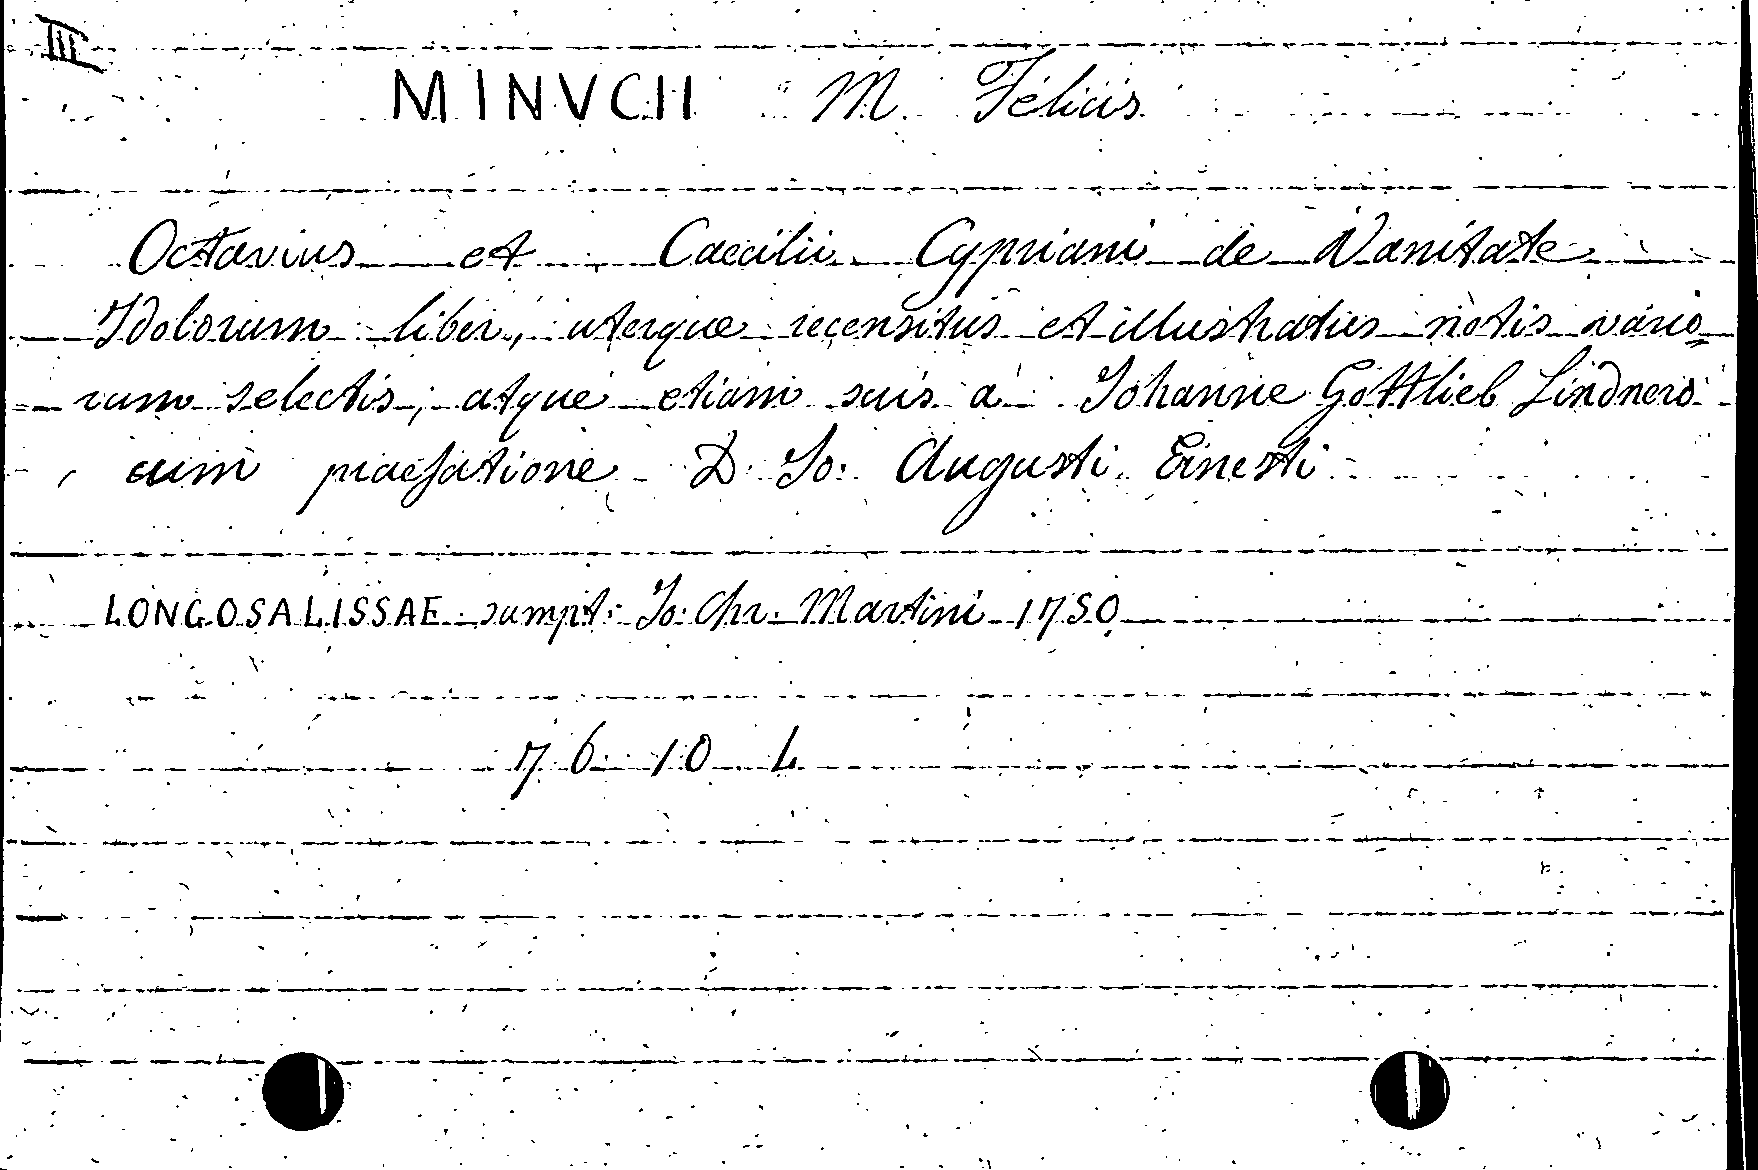 III
MINVCII M. Felicis
Octavius et Caecilii Cypriani de Vanitate
Idolorum liber, uterque recensitus et illustratus notis vario=
rum selectis, atque etiam suis a Iohanne Gottlieb Lindnero
cum praefatione D. Io. Augusti Ernesti
LONGOSALISSAE sumpt: Io: Chr. Martini 1750
76 10 L